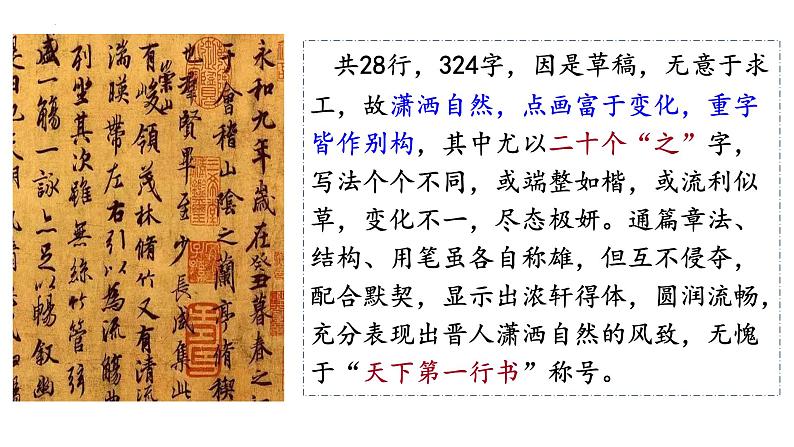 永和九年歲在癸丑暮春之
于會稽山陰之蘭亭脩稧
也羣賢畢至少長咸集此
有崇山峻領茂林脩竹又有清流
湍暎帶左右引以為流觴
列坐其次雖無絲竹管弦
一觴一詠亦足以暢叙幽
共28行，324字，因是草稿，无意于求
工，故潇洒自然，点画富于变化，重字
皆作别构，其中尤以二十个“之”字，
写法个个不同，或端整如楷，或流利似
草，变化不一，尽态极妍。通篇章法、
结构、用笔虽各自称雄，但互不侵夺，
配合默契，显示出浓轩得体，圆润流畅，
充分表现出晋人潇洒自然的风致，无愧
于“天下第一行书”称号。